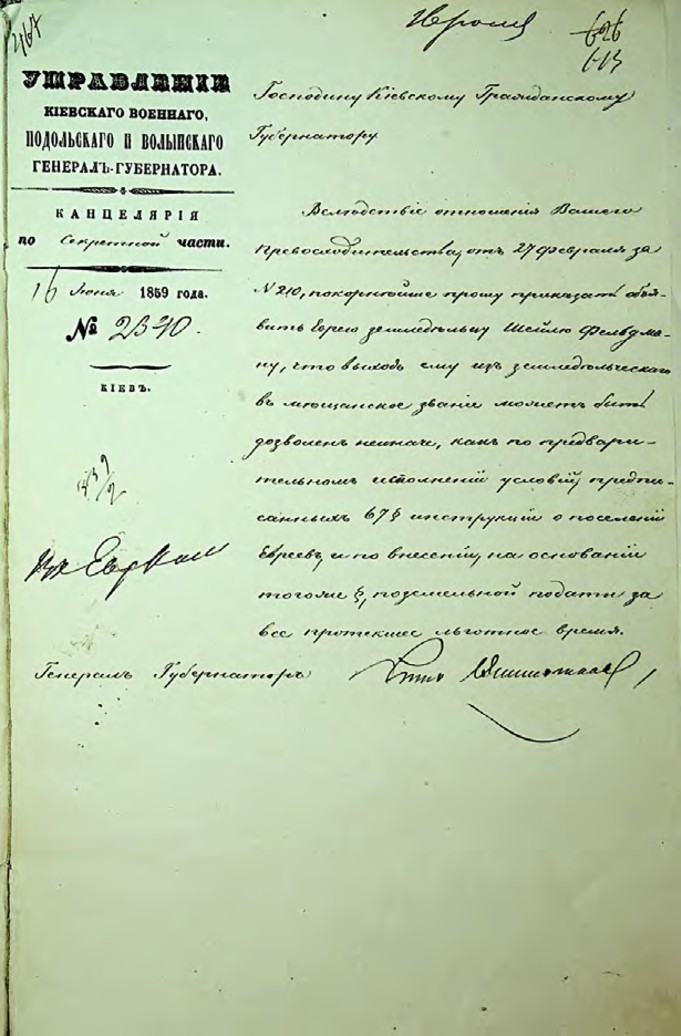 467
626
613
УПРАВЛЕНІЕ
КІЕВСКАГО ВОЕННАГО,
ПОДОЛЬСКАГО И ВОЛЫНСКАГО
ГЕНЕРАЛЪ-ГУБЕРНАТОРА.
КАНЦЕЛЯРІЯ
по Секретной части.
16 Іюня 1859 года.
№ 2340.
КІЕВЪ.
Господину Кіевскому Гражданскому
Губернатору
Вслѣдствіе отношенія Вашего
Превосходительства, отъ 27 Февраля за
N 210, покорнѣйше прошу приказать объя-
вить Еврею земледѣльцу Шейлю Фельдма-
ну, что выходъ ему изъ земледѣльческаго
въ мѣщанское званіе можетъ быть
дозволенъ неиначе, какъ по предвари-
тельномъ исполненіи условій, предпи-
санныхъ 67 § инструкціи о поселеніи
Евреевъ, и по внесеніи, на основаніи
тогоже §, поземельной подати за
все протекшее льготное время.
Генералъ Губернаторъ